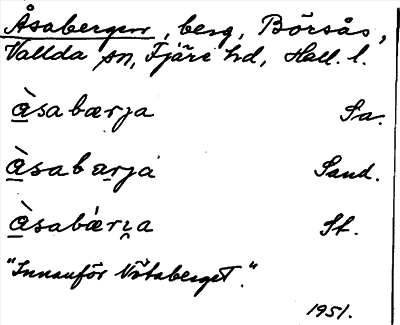 Åsabergen, berg, Börsås,
Vallda sn, Fjäre hd, Hall. l.
à̱sabærja Sa.
à̱sabæ̱rja Sand.
à̱sabǽri̯a St.
"Innanför Vötaberget."
1951.